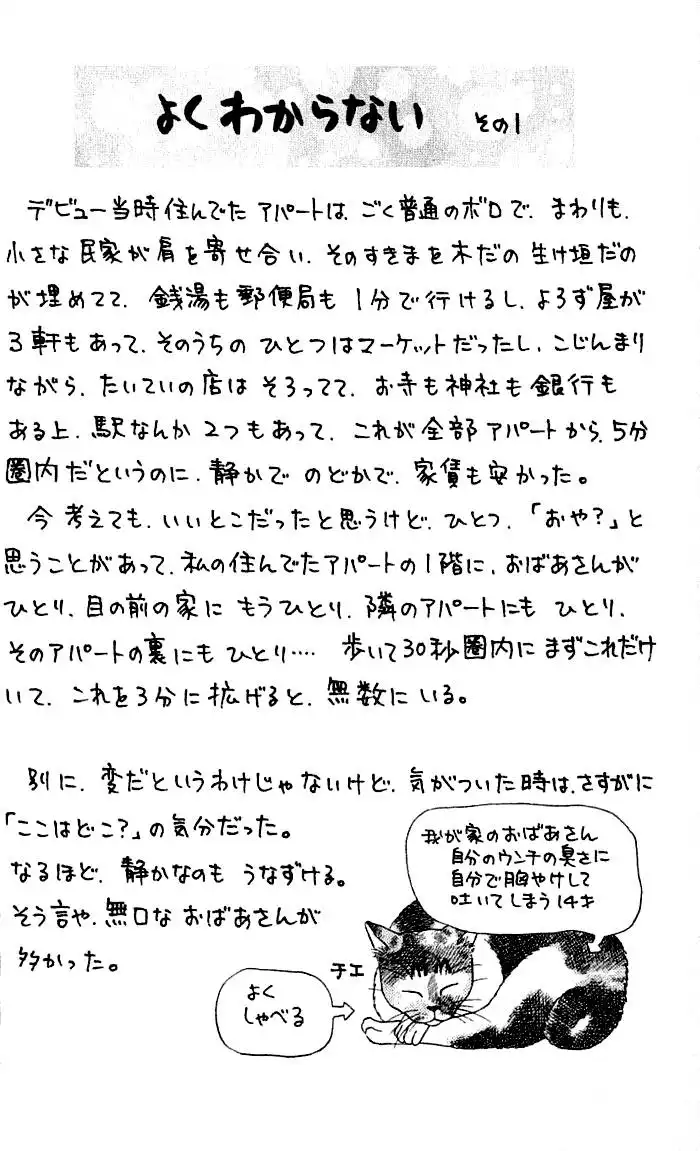 よくわからない その1
デビュー当時住んでたアパートは、ごく普通のボロで、まわりも、
小さな民家が肩を寄せ合い、そのすきまを木だの生け垣だの
が埋めてて、銭湯も郵便局も1分で行けるし、よろず屋が
3軒もあって、そのうちのひとつはマーケットだったし、こじんまり
ながら、たいていの店はそろってて、お寺も神社も銀行も
ある上、駅なんか2つもあって、これが全部アパートから、5分
圏内だというのに、静かでのどかで、家賃も安かった。
今考えても、いいとこだったと思うけど、ひとつ、「おや?」と
思うことがあって、私の住んでたアパートの1階に、おばあさんが
ひとり、目の前の家にもうひとり、隣のアパートにもひとり、
そのアパートの裏にもひとり…… 歩いて30秒圏内にまずこれだけ
いて、これを3分に拡げると、無数にいる。
別に、変だというわけじゃないけど、気がついた時は、さすがに
「ここはどこ?」の気分だった。
なるほど、静かなのもうなずける。
そう言や、無口なおばあさんが
多かった。
我が家のおばあさん
自分のウンチの臭さに
自分で胸やけして
吐いてしまう14才
チエ
よく
しゃべる